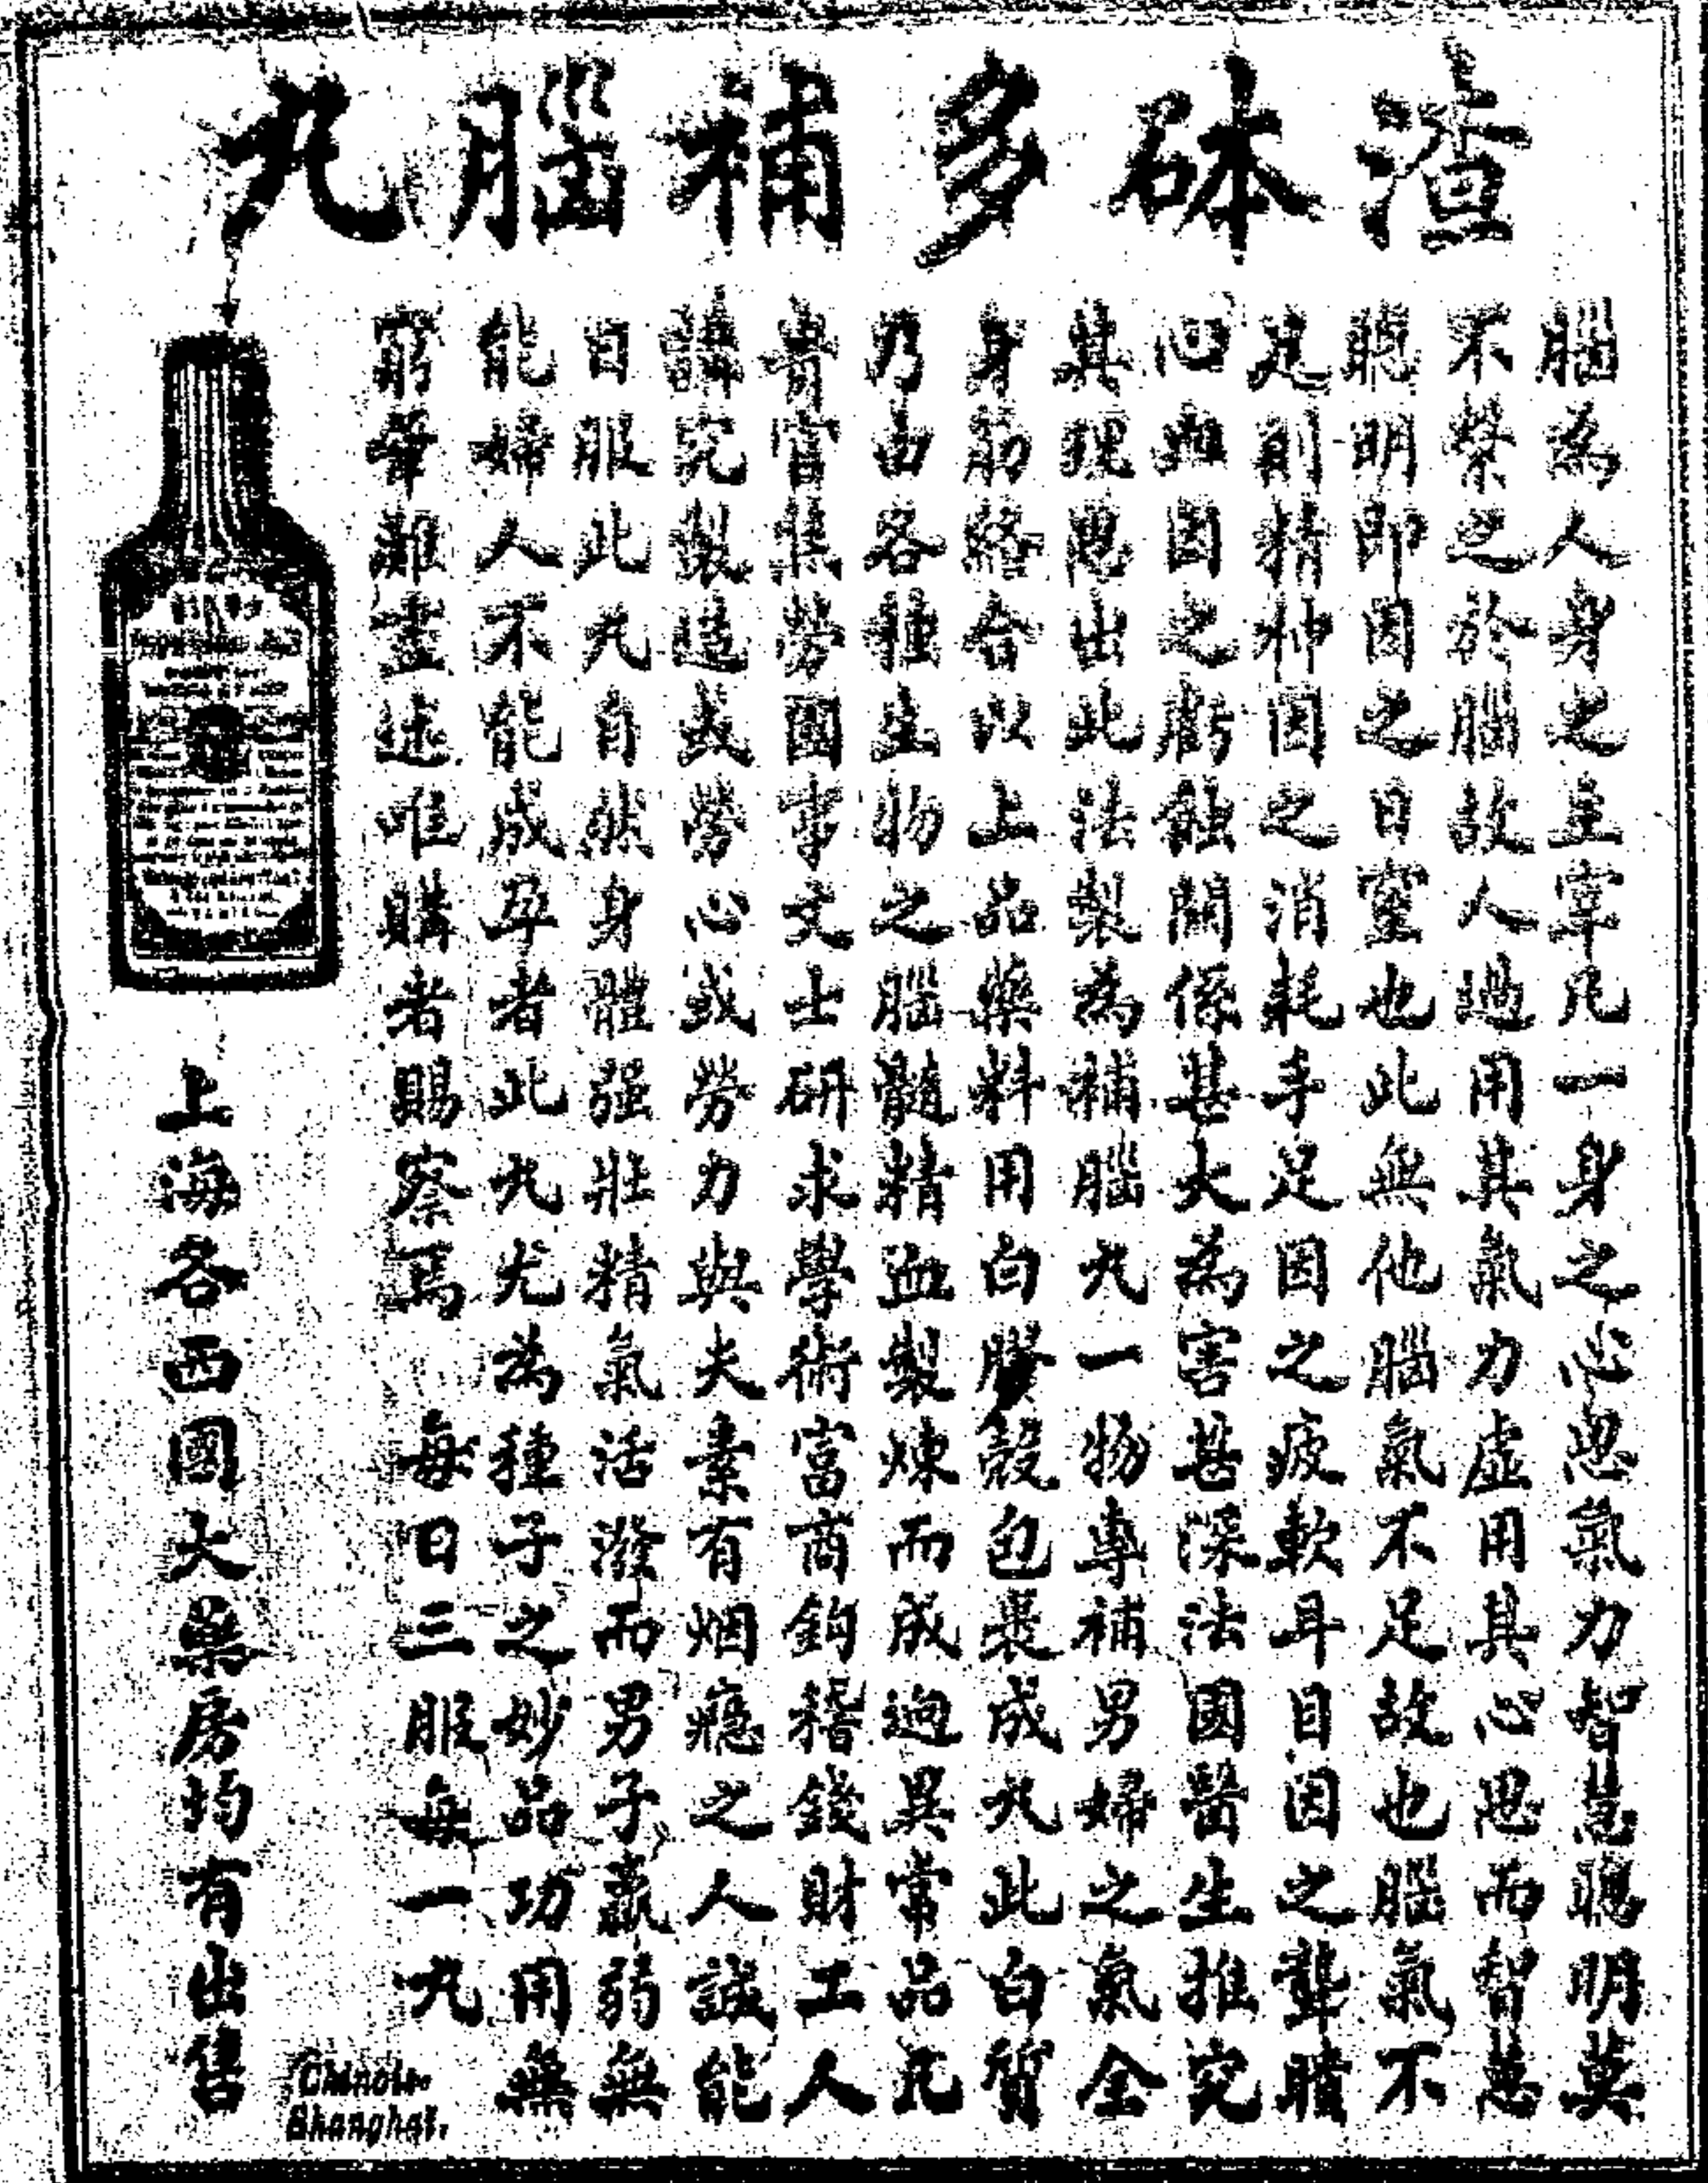 渣砵多補腦丸
腦為人身之主宰凡一身之心思氣力智慧聰明莫
不榮之於腦故人過用其氣力虛用其心思而智慧
聰明即因之日窒也此無他腦氣不足故也腦氣不
足則精神因之消耗手足因之疲軟耳目因之聾聵
心血因之虧蝕關係甚大為害甚深法國醫生推究
其理思出此法製為補腦丸一物專補男婦之氣全
身筋絡合以上品藥料用白膠殼包裹成丸此白質
乃由各種生物之腦髓精血製煉而成迥異常品凡
貴官勤勞國事文士研求學術富商鈎稽錢財工人
講究製造或勞心或勞力與夫素有烟癮之人誠能
日服此丸自然身體强壯精氣活潑而男子羸弱無
能婦人不能成孕者此丸尤為種子之妙品功用無
窮筆難盡述唯購者賜察焉 每日三服每一丸
上海各西國大藥房均有出售
Shanghai.